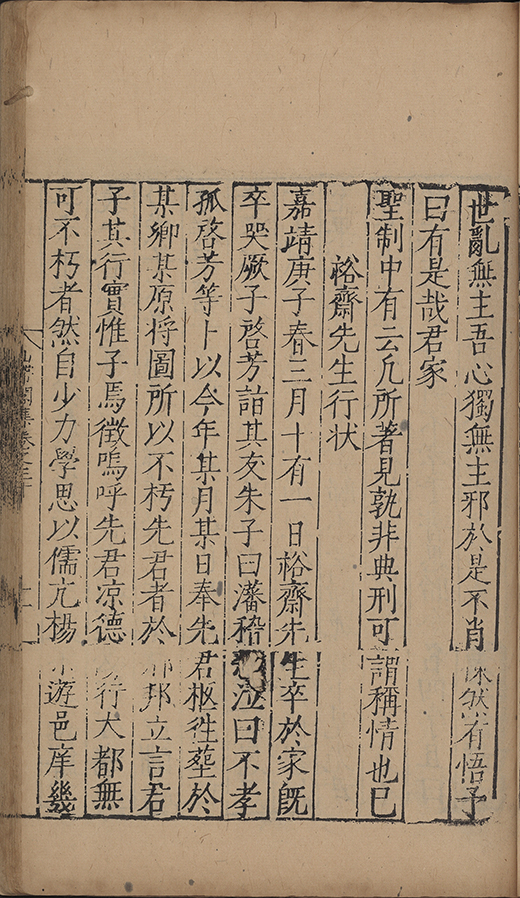 世亂無主吾心獨無主邪於是不肖然有悟子
曰有是哉君家
聖制中有云凢所著見孰非典刑可謂稱情也已
裕齋先生行状
嘉靖庚子春三月十有一日裕齋先生卒於家旣
卒哭厥子啓芳詣其友朱子曰瀋稡泣曰不孝
孤啓芳等卜以今年某月某日奉先君柩徃塟於
某鄉某原将圖所以不朽先君者於邦立言君
子其行實惟子焉徵嗚呼先君凉德行大都無
可不朽者然自少力學思以儒亢楊遊邑庠幾